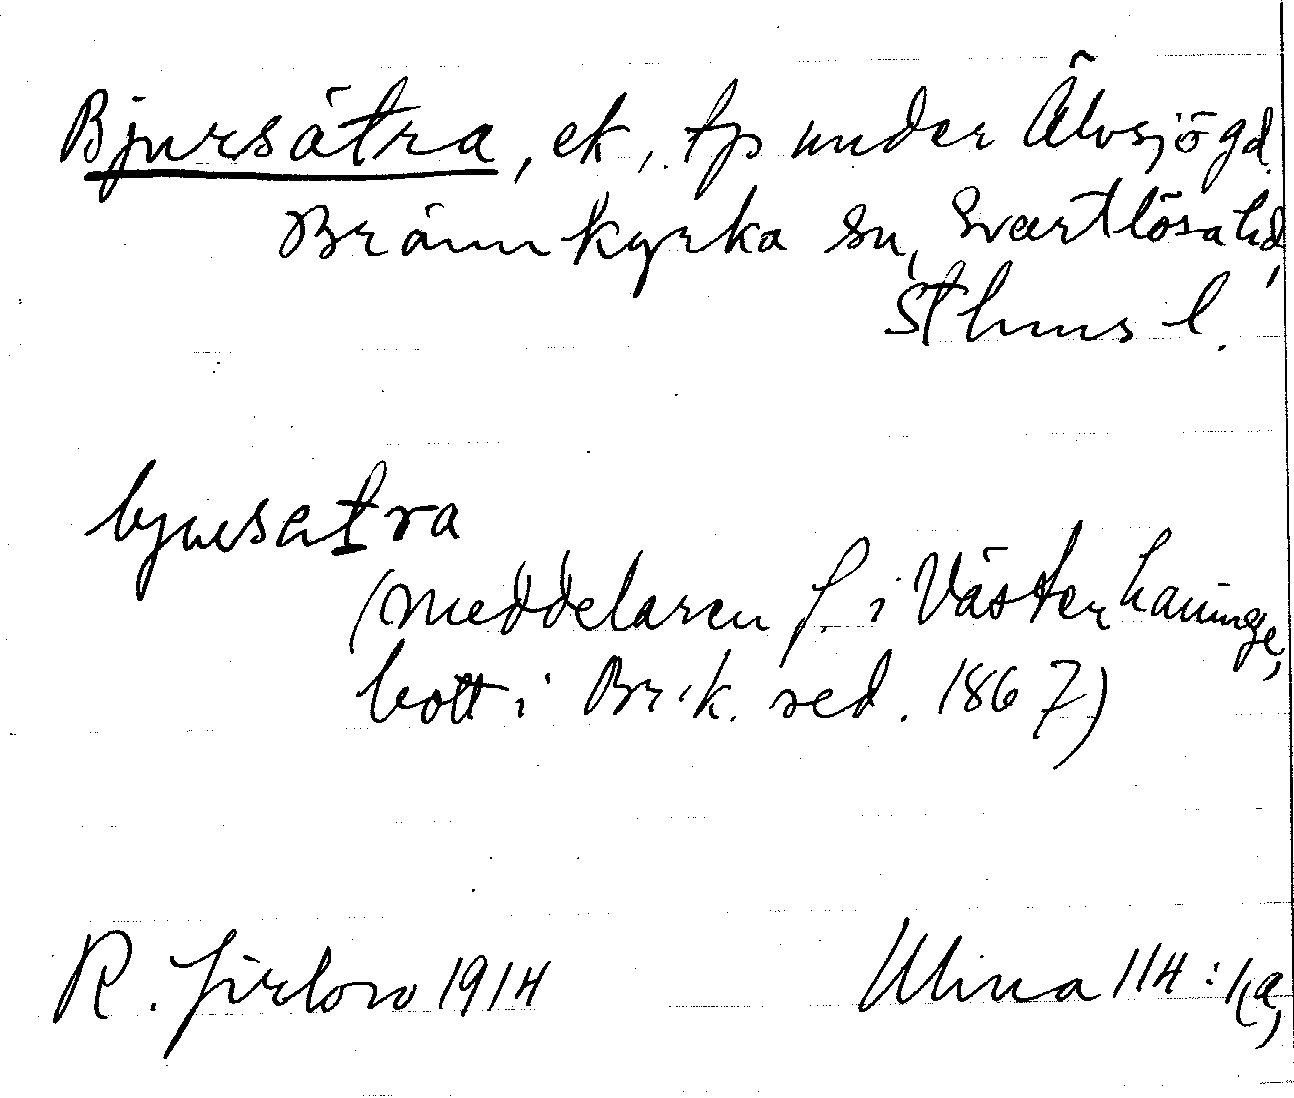 Bjursätra, ek, tp under Älvsjö gd.
Brännkyrka sn, Svartlösa hd,
Sthms l.
bjursatra
(meddelaren f. i Västerhaninge,
bott i Br.k. sed. 1867)
R. Jirlow 1914
Ulma 114:1,a,